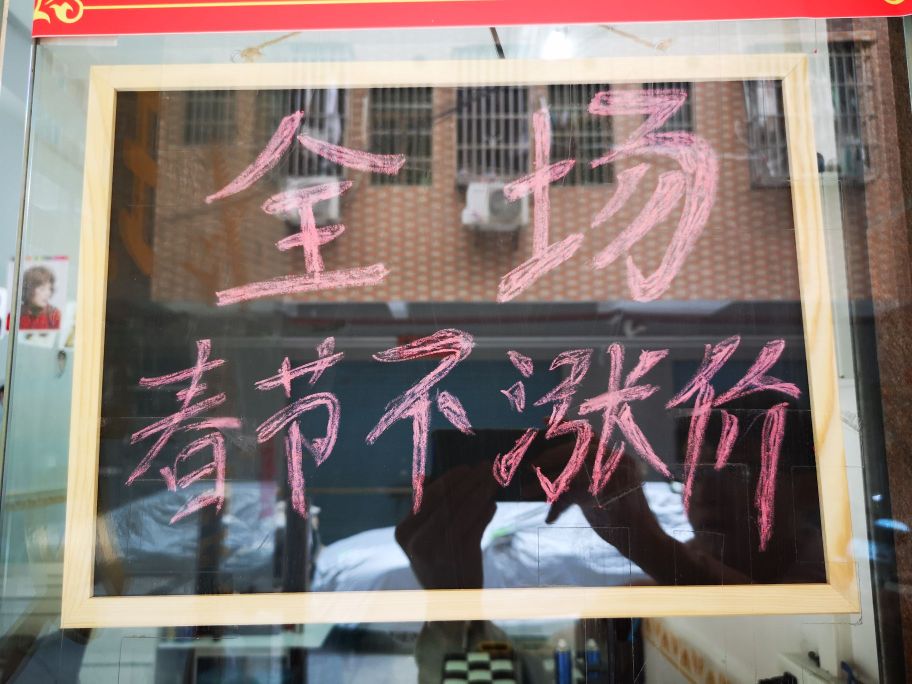 全场
春节不涨价